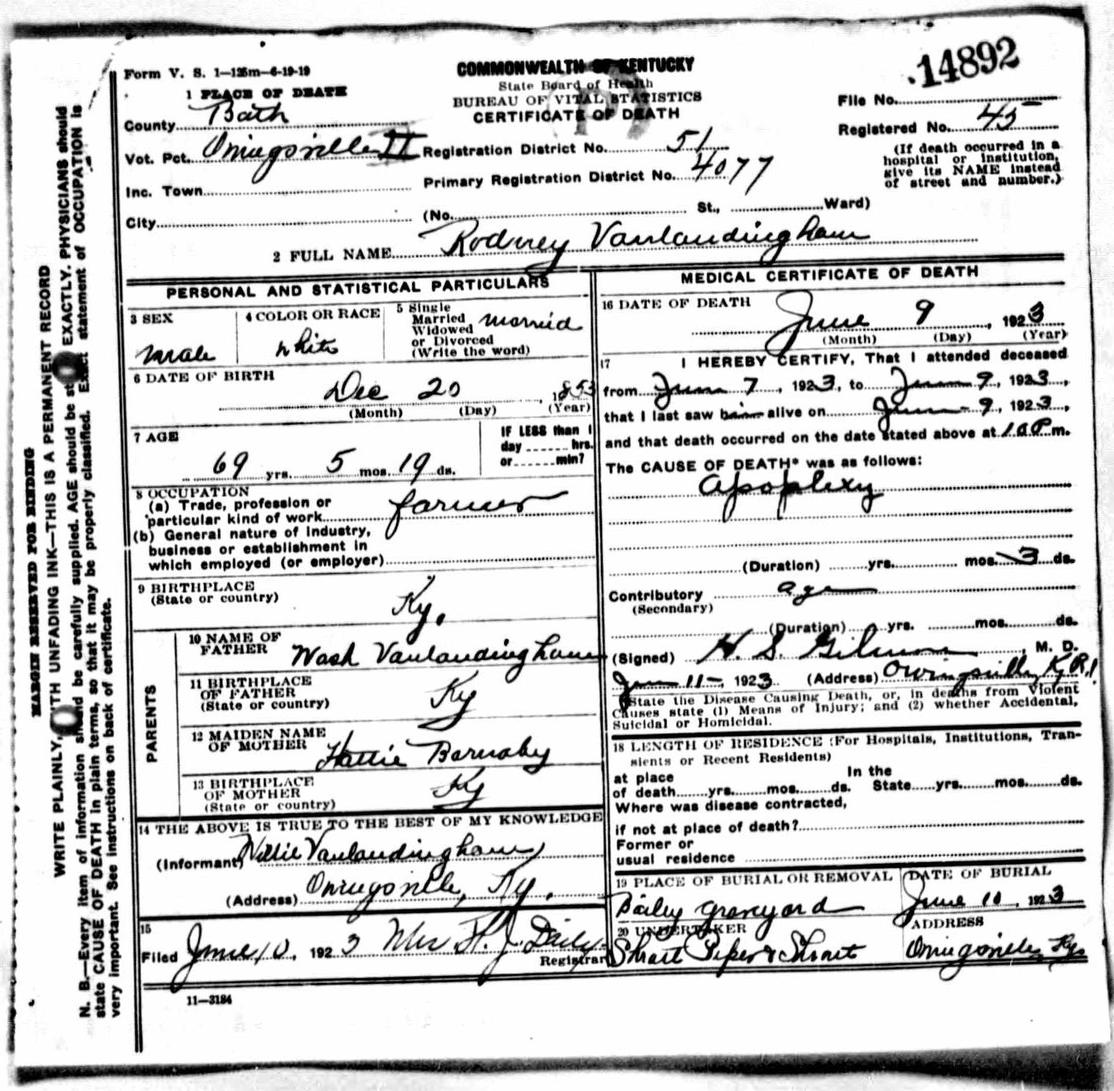 Form V. S. 1—125m—6-19-19
COMMONWEALTH OF KENTUCKY
State Board of Health
BUREAU OF VITAL STATISTICS
CERTIFICATE OF DEATH
14892
File No.
Registered No. 45
(If death occurred in a hospital or institution, give its NAME instead of street and number.)
1 PLACE OF DEATH
County Bath
Vot. Pct. Owingsville II Registration District No. 51
Inc. Town Primary Registration District No. 4077
City (No. St., Ward)
2 FULL NAME Rodney Vanlandingham
PERSONAL AND STATISTICAL PARTICULARS
3 SEX
male
4 COLOR OR RACE
white
5 Single
Married
Widowed
or Divorced
(Write the word)
married
6 DATE OF BIRTH
Dec 20, 1853
(Month) (Day) (Year)
7 AGE
69 yrs. 5 mos. 19 ds.
IF LESS than 1
day hrs.
or min?
8 OCCUPATION
(a) Trade, profession or
particular kind of work farmer
(b) General nature of Industry,
business or establishment in
which employed (or employer)
9 BIRTHPLACE
(State or country)
Ky.
PARENTS
10 NAME OF
FATHER Wash Vanlandingham
11 BIRTHPLACE
OF FATHER
(State or country)
Ky
12 MAIDEN NAME
OF MOTHER
Hattie Barnaby
13 BIRTHPLACE
OF MOTHER
(State or country)
Ky
14 THE ABOVE IS TRUE TO THE BEST OF MY KNOWLEDGE
(Informant) Willie Vanlandingham
(Address) Owingsville, Ky.
15
Filed June 10, 1923 Mrs H. J. Daily
Registrar
11—3184
MEDICAL CERTIFICATE OF DEATH
16 DATE OF DEATH
June 9, 1923
(Month) (Day) (Year)
17 I HEREBY CERTIFY, That I attended deceased
from June 7, 1923, to June 9, 1923,
that I last saw him alive on June 9, 1923,
and that death occurred on the date stated above at m.
The CAUSE OF DEATH* was as follows:
apoplexy
(Duration) yrs. mos. 3 ds.
Contributory age
(Secondary)
(Duration) yrs. mos. ds.
(Signed) H. S. Gilmon M. D.
June 11-, 1923 (Address) Owingsville Ky R.1
*State the Disease Causing Death, or, in deaths from Violent
Causes state (1) Means of Injury; and (2) whether Accidental,
Suicidal or Homicidal.
18 LENGTH OF RESIDENCE (For Hospitals, Institutions, Tran-
sients or Recent Residents)
at place In the
of death yrs. mos. ds. State yrs. mos. ds.
Where was disease contracted,
if not at place of death?
Former or
usual residence
19 PLACE OF BURIAL OR REMOVAL
Bailey graveyard
DATE OF BURIAL
June 10, 1923
20 UNDERTAKER
Shrout Piper & Shrout
ADDRESS
Owingsville, Ky.
MARGIN RESERVED FOR BINDING
WRITE PLAINLY, WITH UNFADING INK—THIS IS A PERMANENT RECORD
N. B.—Every item of information should be carefully supplied. AGE should be stated EXACTLY. PHYSICIANS should
state CAUSE OF DEATH in plain terms, so that it may be properly classified. Exact statement of OCCUPATION is
very important. See instructions on back of certificate.